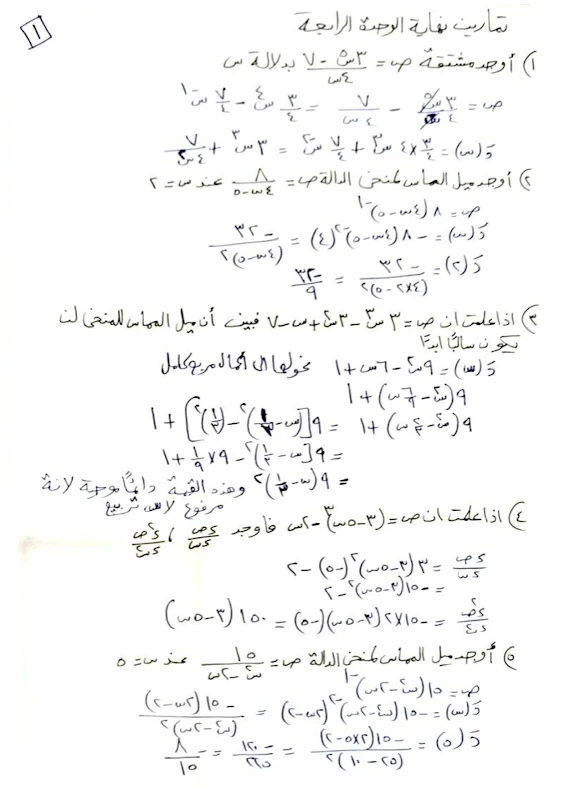 ١
تمارين نهاية الوحدة الرابعة
١) أوجد مشتقة ص = (٣س^٥ - ٧)/(٤س) بدلالة س
ص = ٣س^٥/٤س - ٧/٤س = ٣/٤ س^٤ - ٧/٤ س^-١
دَ(س) = ٣/٤ × ٤ س^٣ + ٧/٤ س^-٢ = ٣س^٣ + ٧/٤س^٢
٢) أوجد ميل المماس لمنحنى الدالة ص = ٨/(٤س-٥) عند س = ٢
ص = ٨(٤س-٥)^-١
دَ(س) = -٨(٤س-٥)^-٢ (٤) = -٣٢/(٤س-٥)^٢
دَ(٢) = -٣٢/(٤×٢-٥)^٢ = -٣٢/٩
٣) اذا علمت ان ص = ٣س^٣ - ٣س^٢ + س - ٧ فبين أن ميل المماس للمنحنى لن
يكون سالبًا ابدًا
دَ(س) = ٩س^٢ - ٦س + ١ نحولها الى اكمال مربع كامل
٩(س^٢ - ٦/٩ س) + ١
٩(س^٢ - ٢/٣ س) + ١ = ٩[(س - ١/٣)^٢ - (١/٣)^٢] + ١
= ٩[س - ١/٣)^٢ - ٩ × ١/٩ + ١
= ٩(س - ١/٣)^٢ وهذه القيمة دائمًا موجبة لانة
مرفوع لاس تربيع
٤) اذا علمت ان ص = (٣-٥س)^٣ - ٢س فاوجد ءص/ءس ، ء^٢ص/ءس^٢
ءص/ءس = ٣(٣-٥س)^٢(-٥) - ٢
= -١٥(٣-٥س)^٢ - ٢
ء^٢ص/ءس^٢ = -١٥×٢(٣-٥س)(-٥) = ١٥٠(٣-٥س)
٥) أوجد ميل المماس لمنحنى الدالة ص = ١٥/(س^٢-٢س) عند س = ٥
ص = ١٥(س^٢-٢س)^-١
دَ(س) = -١٥(س^٢-٢س)^-٢ (٢س-٢) = -١٥(٢س-٢)/(س^٢-٢س)^٢
دَ(٥) = -١٥(٢×٥-٢)/(٢٥-١٠)^٢ = -١٢٠/٢٢٥ = -٨/١٥